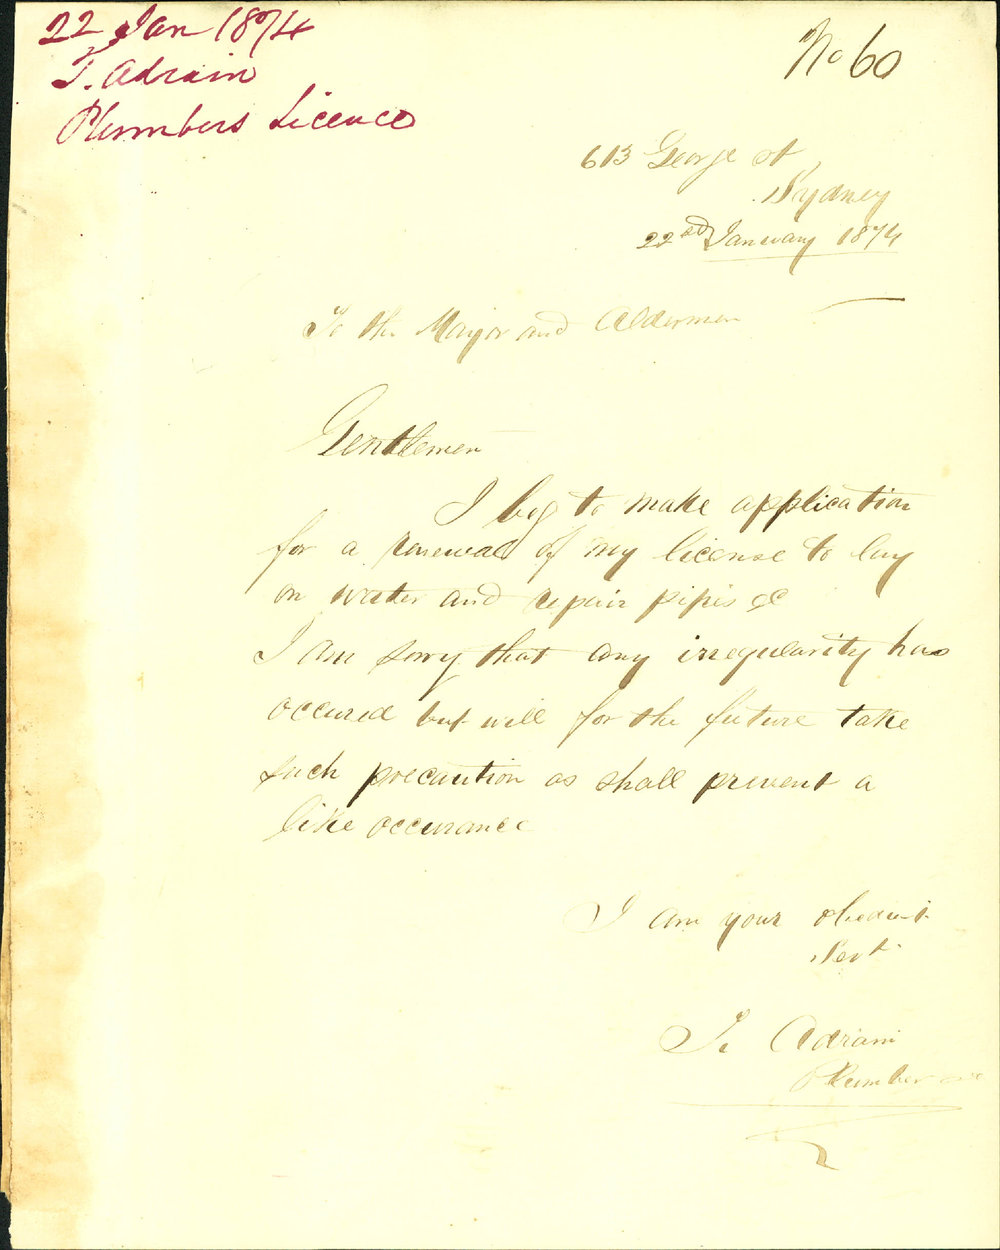 22 Jan 1874
T. Adrain
Plumbers Licence
No 60
613 George st
Sydney
22nd January 1874
To the Mayor and Aldermen
Gentlemen
I beg to make application
for a renewal of my license to lay
on water and repair pipes &c
I am sorry that any irregularity has
occured but will for the future take
such precaution as shall prevent a
like occurance
I am your obedient
Servt
T. Adrain
Plumber &c